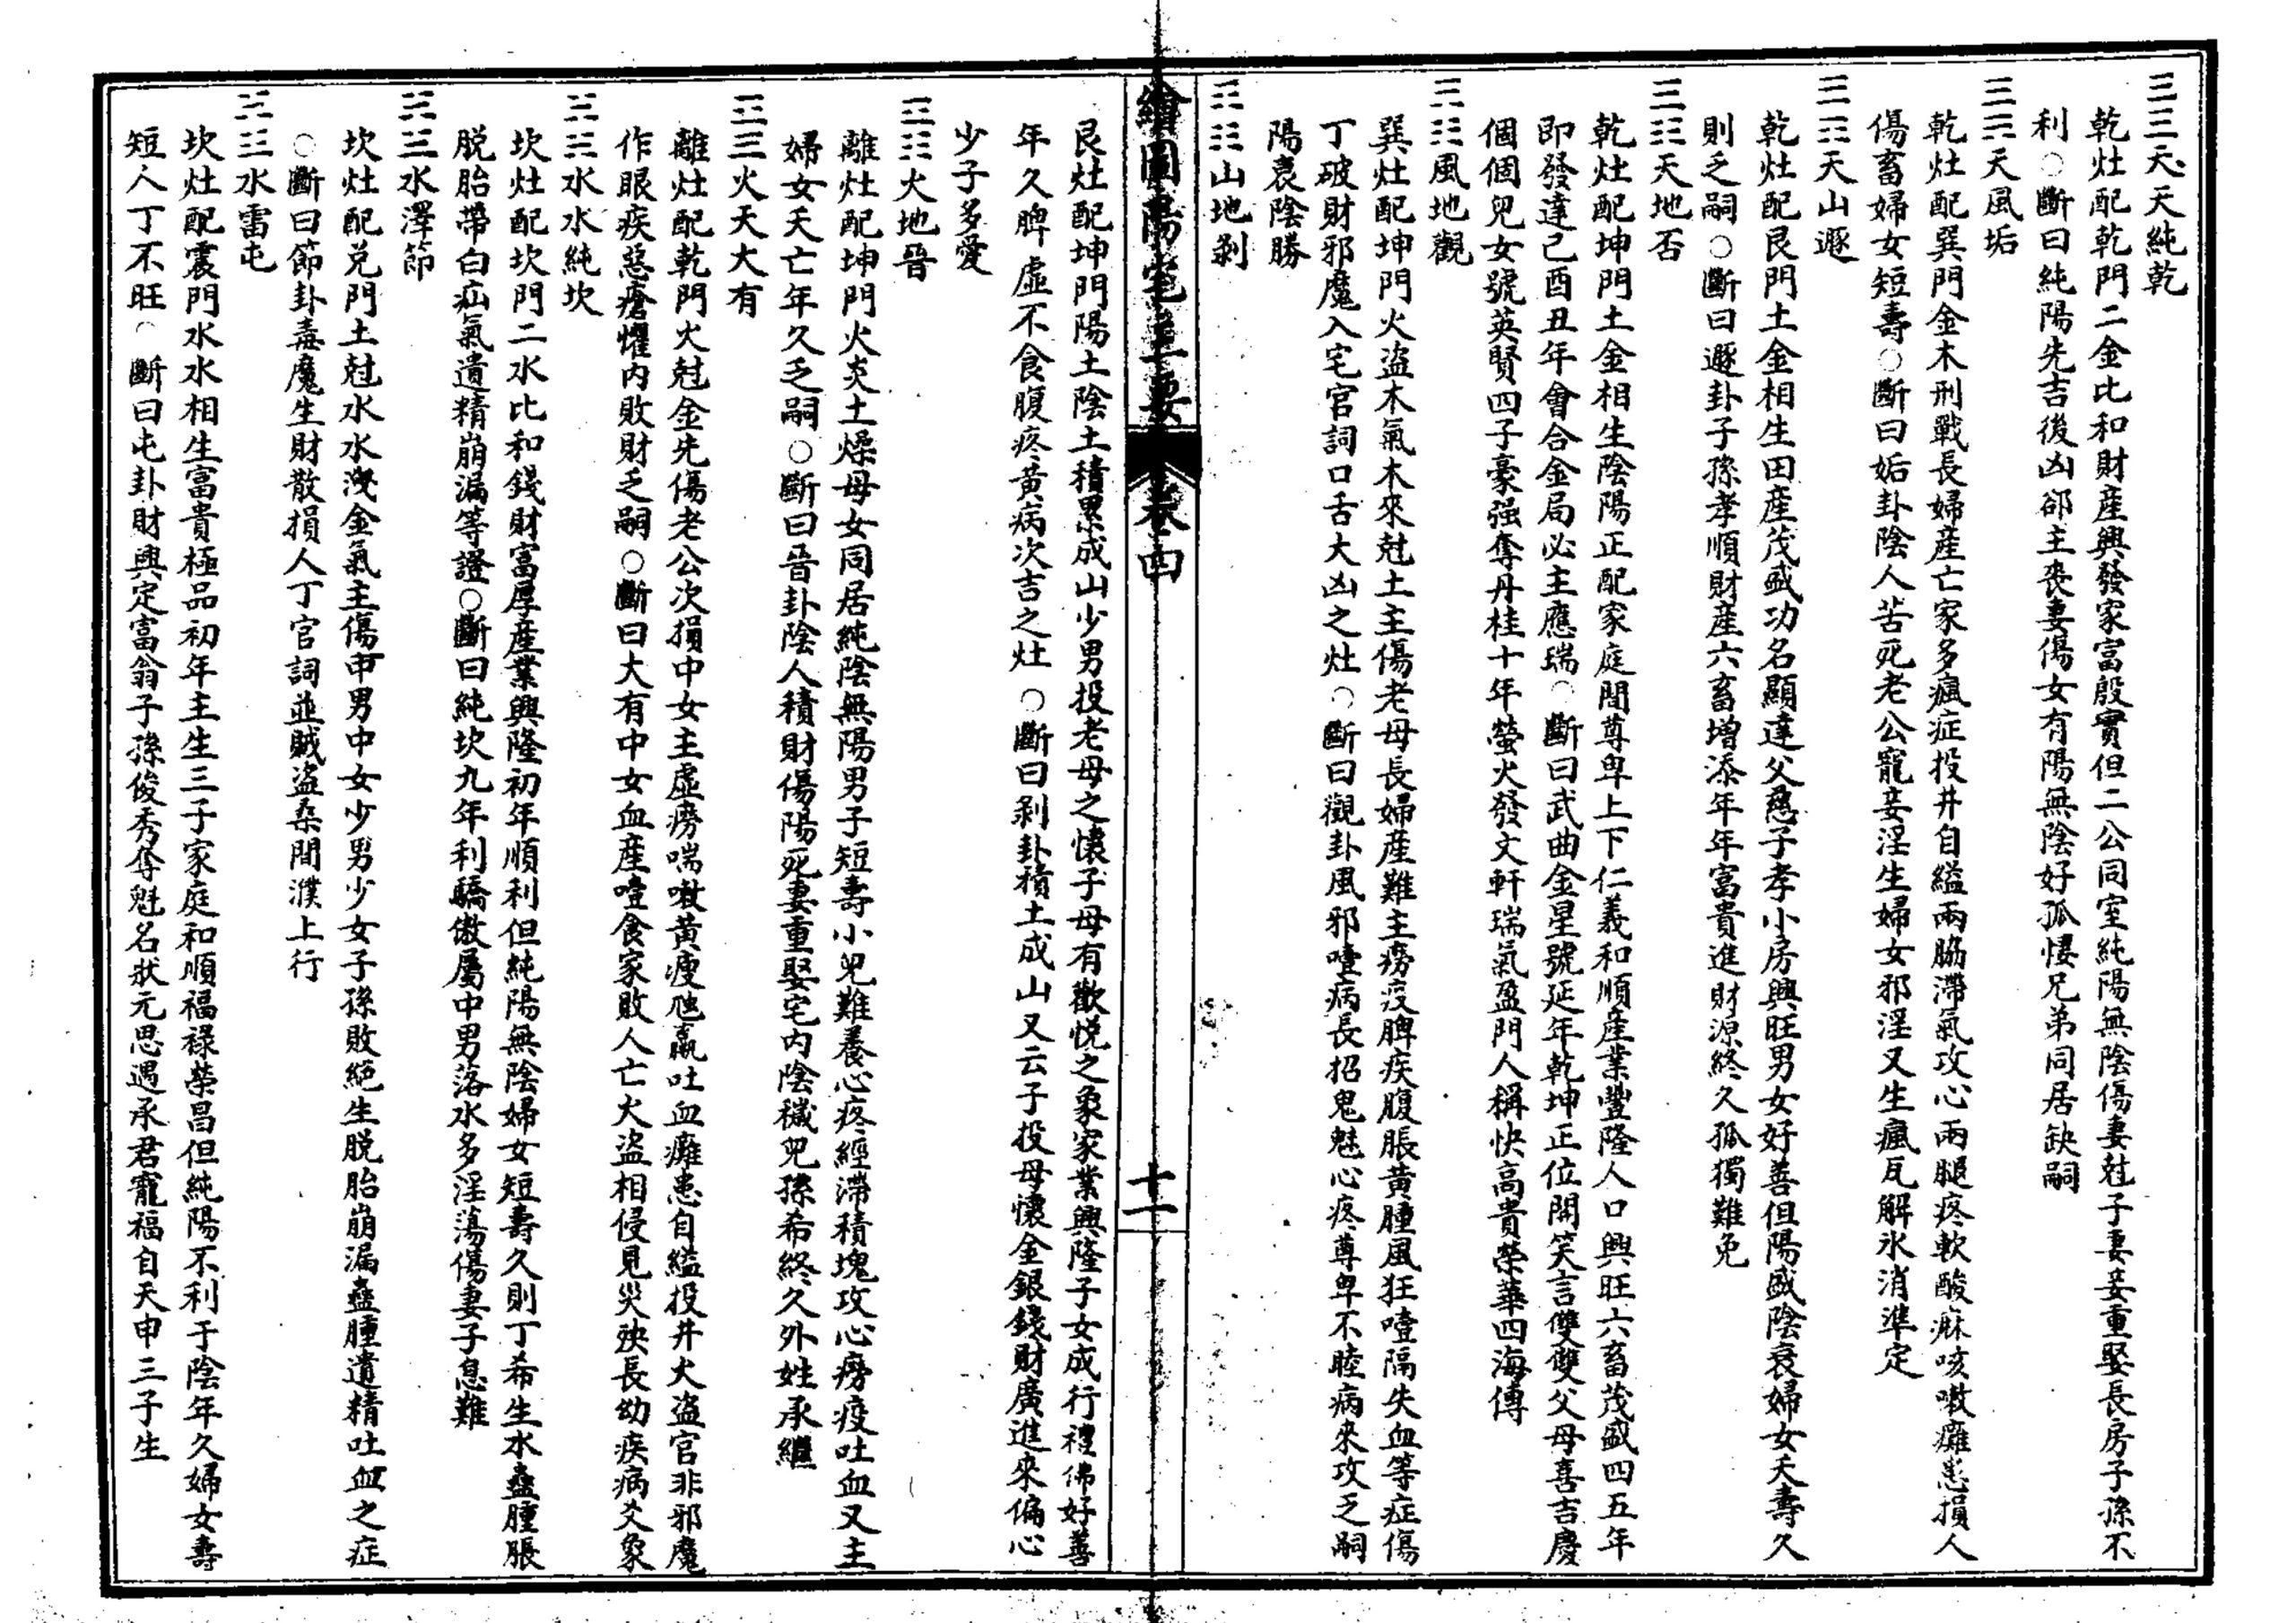 ☰☰天天純乾
乾灶配乾門二金比和財産興發家富殷實但二公同室純陽無陰傷妻尅子妻妾重娶長房子孫不
利○斷曰純陽先吉後凶郤主喪妻傷女有陽無陰好孤悽兄弟同居缺嗣
☰☴天風垢
乾灶配巽門金木刑戰長婦産亡家多瘋症投井自縊兩脇滯氣攻心兩腿疼軟酸麻咳嗽癱恙損人
傷畜婦女短壽○斷曰姤卦陰人苦死老公寵妾淫生婦女邪淫又生瘋瓦解氷消準定
☰☶天山遯
乾灶配艮門土金相生田産茂盛功名顯達父慈子孝小房興旺男女好善但陽盛陰衰婦女夭壽久
則乏嗣○斷曰遯卦子孫孝順財産六畜增添年年富貴進財源終久孤獨難免
☰☷天地否
乾灶配坤門土金相生陰陽正配家庭間尊卑上下仁義和順産業豐隆人口興旺六畜茂盛四五年
即發達己酉丑年會合金局必主應瑞○斷曰武曲金星號延年乾坤正位開笑言雙雙父母喜吉慶
個個兒女號英賢四子豪强奪丹桂十年螢火發丈軒瑞氣盈門人稱快高貴榮華四海傳
☴☷風地觀
巽灶配坤門火盜木氣木來尅土主傷老母長婦産難主癆疫脾疾腹脹黃腫風狂噎隔失血等症傷
丁破財邪魔入宅官詞口舌大凶之灶○斷曰觀卦風邪噎病長招鬼魅心疼尊卑不睦病來攻乏嗣
陽衰陰勝
☶☷山地剝
繪圖陽宅三要　卷四　十一
艮灶配坤門陽土陰土積累成山少男投老母之懷子母有歡悦之象家業興隆子女成行禮佛好善
年久脾虛不食腹疼黃病次吉之灶○斷曰剝卦積土成山又云子投母懷金銀錢財廣進來偏心
少子多愛
☲☷火地晉
離灶配坤門火炎土燥母女同居純陰無陽男子短壽小兒難養心疼經滯積塊攻心癆疫吐血又主
婦女夭亡年久乏嗣○斷曰晉卦陰人積財傷陽死妻重娶宅内陰穢兒孫希終久外姓承繼
☲☰火天大有
離灶配乾門火尅金先傷老公次損中女主虛癆喘嗽黃瘦尪羸吐血癱恙自縊投井火盜官非邪魔
作眼疾惡瘡懼内敗財乏嗣○斷曰大有中女血産噎食家敗人亡火盜相侵見災殃長幼疾病爻象
☵☵水水純坎
坎灶配坎門二水比和錢財富厚産業興隆初年順利但純陽無陰婦女短壽久則丁希生水蠱腫脹
脱胎帶白疝氣遺精崩漏等證○斷曰純坎九年利驕傲屬中男落水多淫蕩傷妻子息難
☵☱水澤節
坎灶配兑門土尅水水洩金氣主傷中男中女少男少女子孫敗絶生脱胎崩漏蠱腫遺精吐血之症
○斷曰節卦毒魔生財散損人丁官詞並賊盜桑間濮上行
☵☳水雷屯
坎灶配震門水水相生富貴極品初年主生三子家庭和順福祿榮昌但純陽不利于陰年久婦女壽
短人丁不旺○斷曰屯卦財興定富翁子孫俊秀奪魁名狀元思遇承君寵福自天申三子生